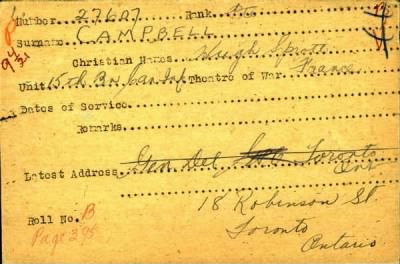 Number 27607 Rank Pte
Surname CAMPBELL
Christian Names Hugh Sproat
Unit 15th Bn Can Inf Theatre of War France
Dates of Service
Remarks
Latest Address Gen Del Toronto
Ont
18 Robinson St.
Roll No. B
Toronto
Page 395
Ontario